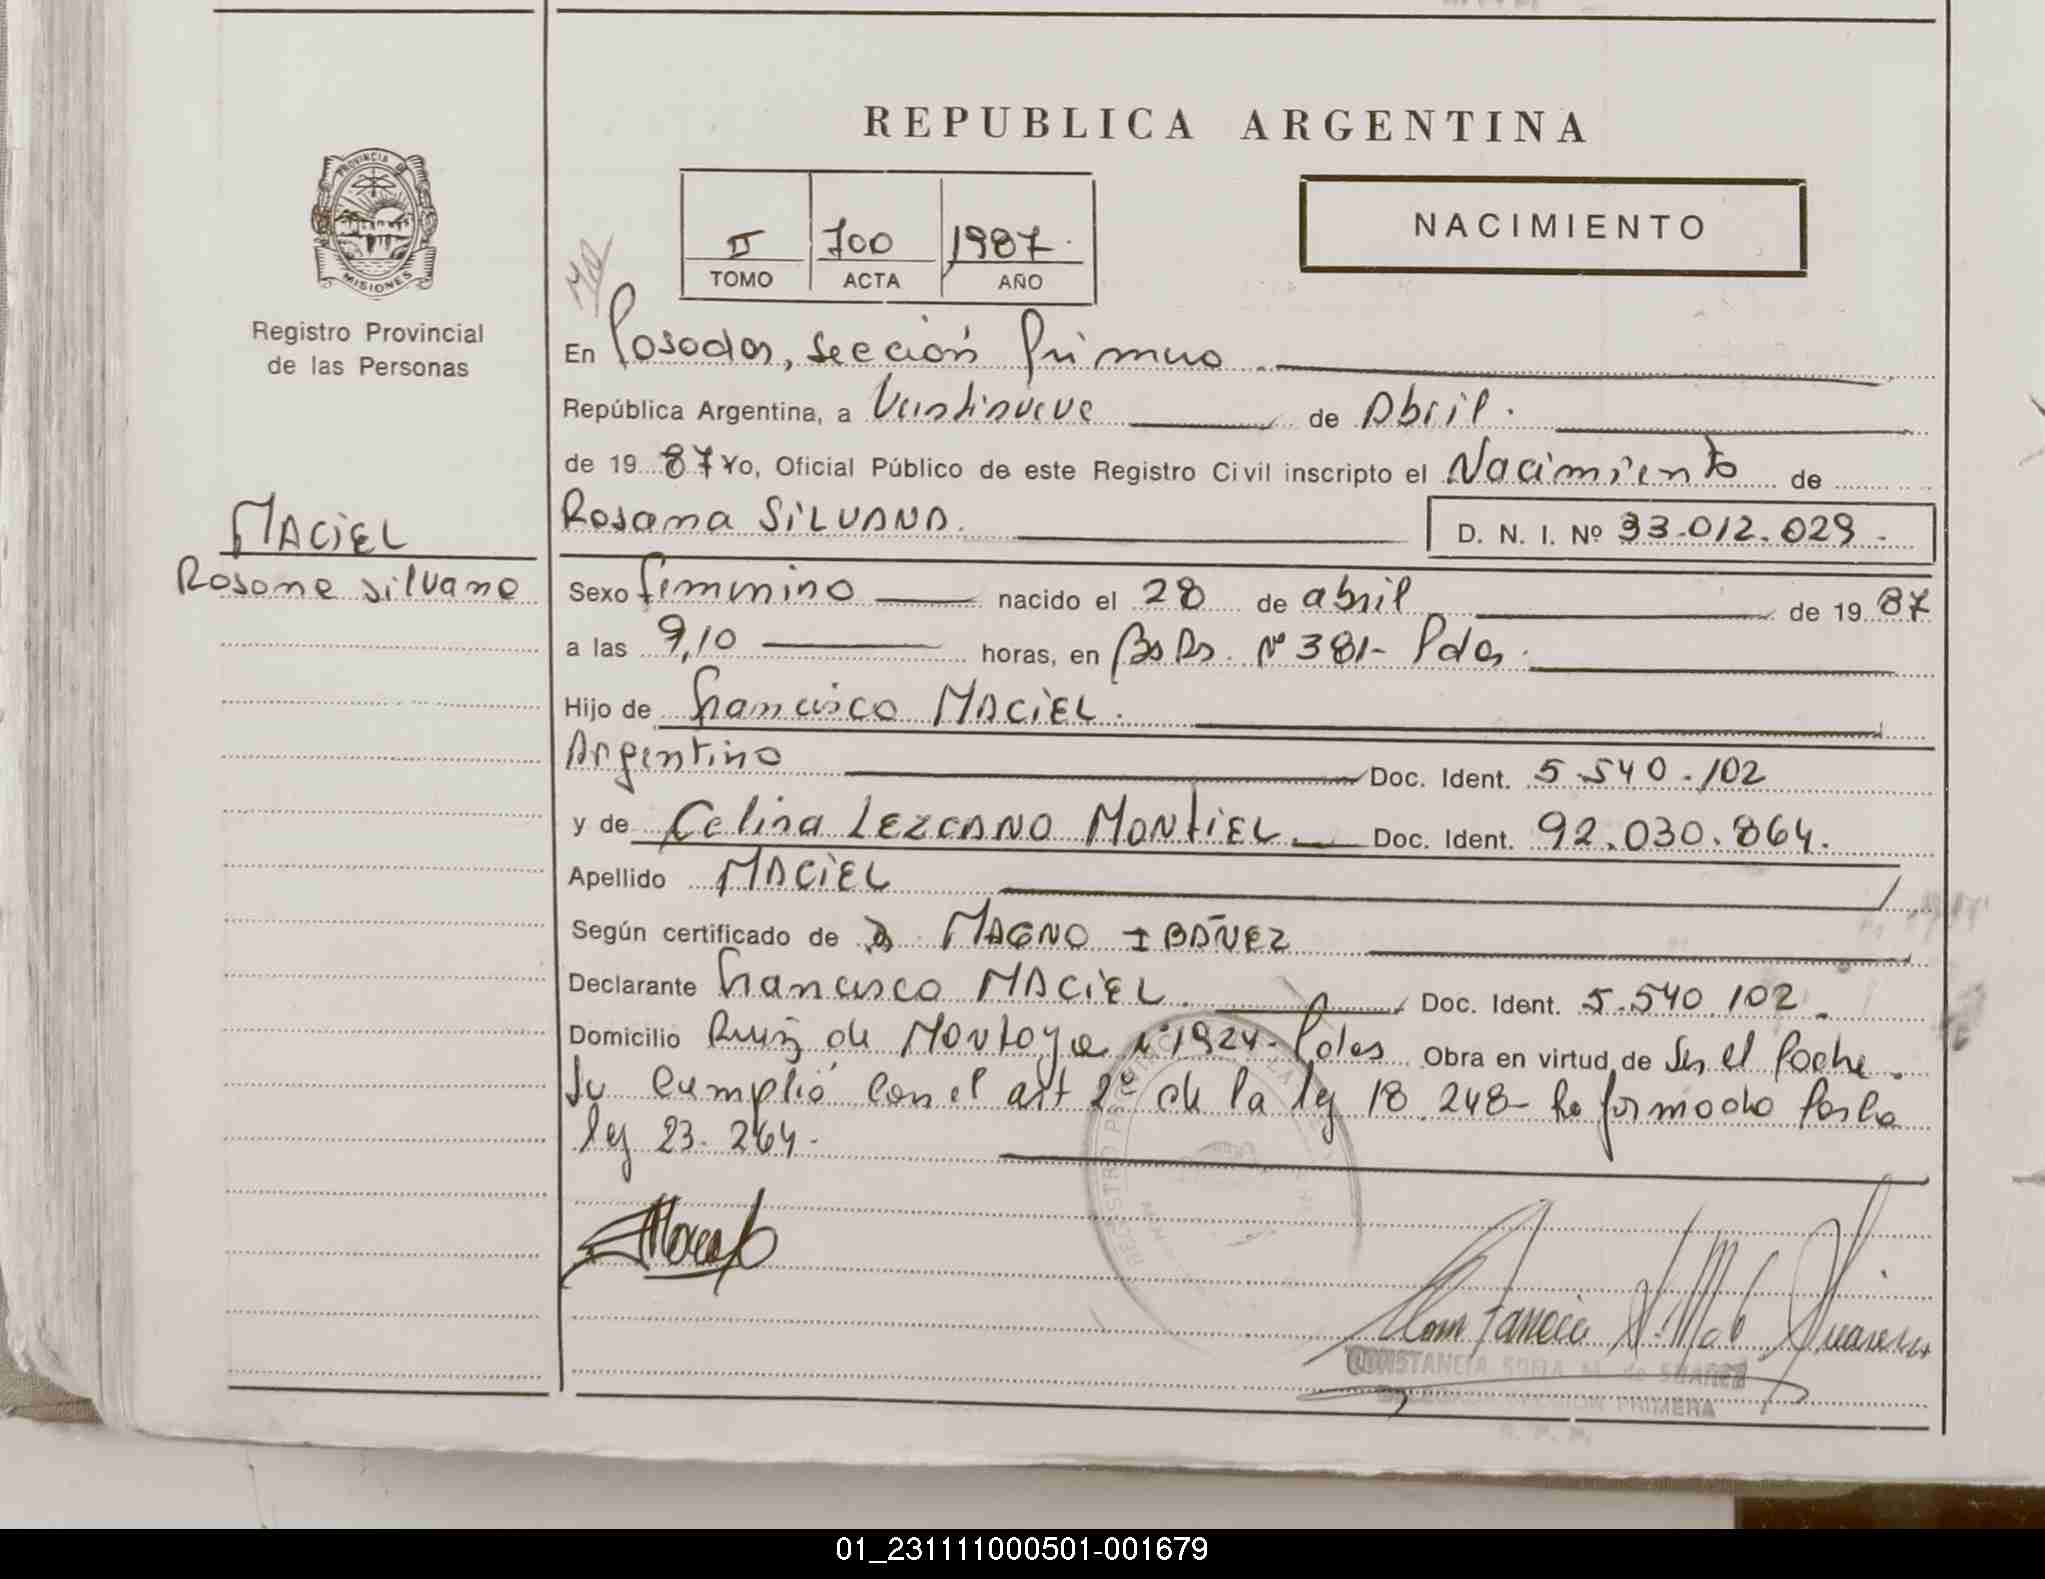 REPUBLICA ARGENTINA
PROVINCIA DE
MISIONES
Registro Provincial
de las Personas
II 700 1987
TOMO ACTA AÑO
NACIMIENTO
En Posadas, sección Primera
República Argentina, a Veintinueve de Abril.
de 19 87 Yo, Oficial Público de este Registro Civil inscripto el Nacimiento de
MACIEL
Rosana Silvana
Rosana SILVANA. D. N. I. Nº 33.012.029.
Sexo femenino nacido el 28 de abril de 19 87
a las 9,10 horas, en Bs As. Nº 381- Pdas.
Hijo de Francisco MACIEL.
Argentino Doc. Ident. 5.540.102
y de Celina LEZCANO MONTIEL Doc. Ident. 92.030.864.
Apellido MACIEL
Según certificado de MAGNO IBAÑEZ
Declarante Francisco MACIEL. Doc. Ident. 5.540.102.
Domicilio Ruiz de MONTOYA Nº 1924- Pdas Obra en virtud de Ser el Padre.
Se Cumplió con el art 2º de la ley 18.248- Reformada por la
ley 23.264.
REGISTRO PROVINCIAL DE LA
CONSTANCIA SOFIA M. de SUAREZ
DELEGADA SECCION PRIMERA
R. P. P.
01_231111000501-001679